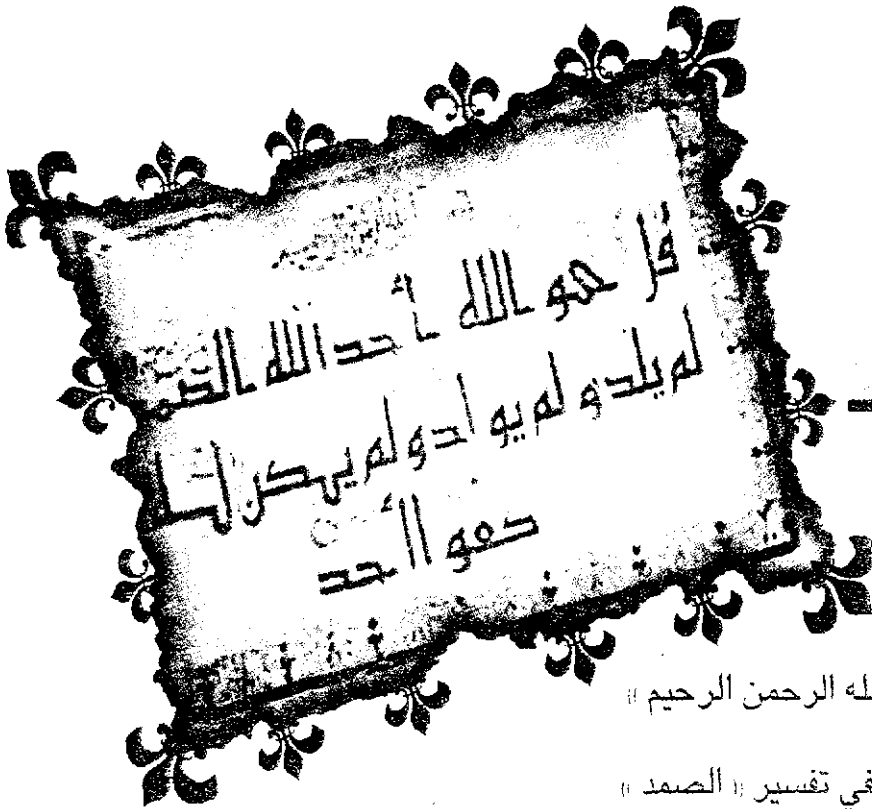 قل هو الله أحد الله
لم يلد ولم يولد ولم يكن له
كفوا أحد
لله الرحمن الرحيم »
في تفسير « الصمد »